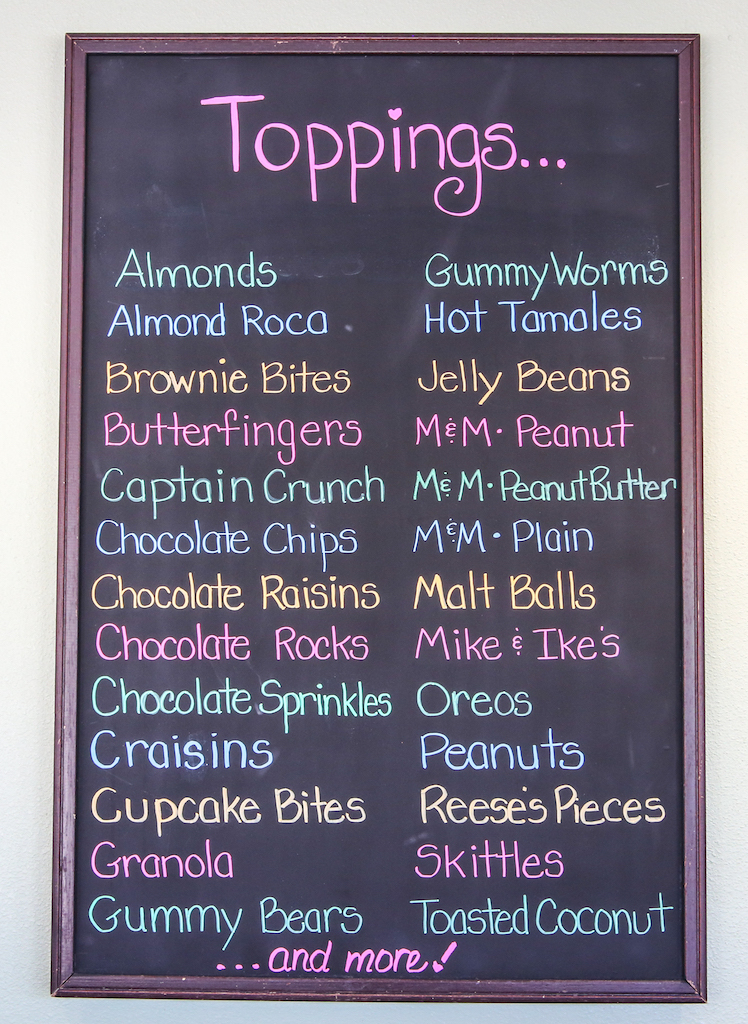 Toppings...
Almonds
Almond Roca
Brownie Bites
Butterfingers
Captain Crunch
Chocolate Chips
Chocolate Raisins
Chocolate Rocks
Chocolate Sprinkles
Craisins
Cupcake Bites
Granola
Gummy Bears
Gummy Worms
Hot Tamales
Jelly Beans
M&M · Peanut
M&M · Peanut Butter
M&M · Plain
Malt Balls
Mike & Ike's
Oreos
Peanuts
Reese's Pieces
Skittles
Toasted Coconut
...and more!